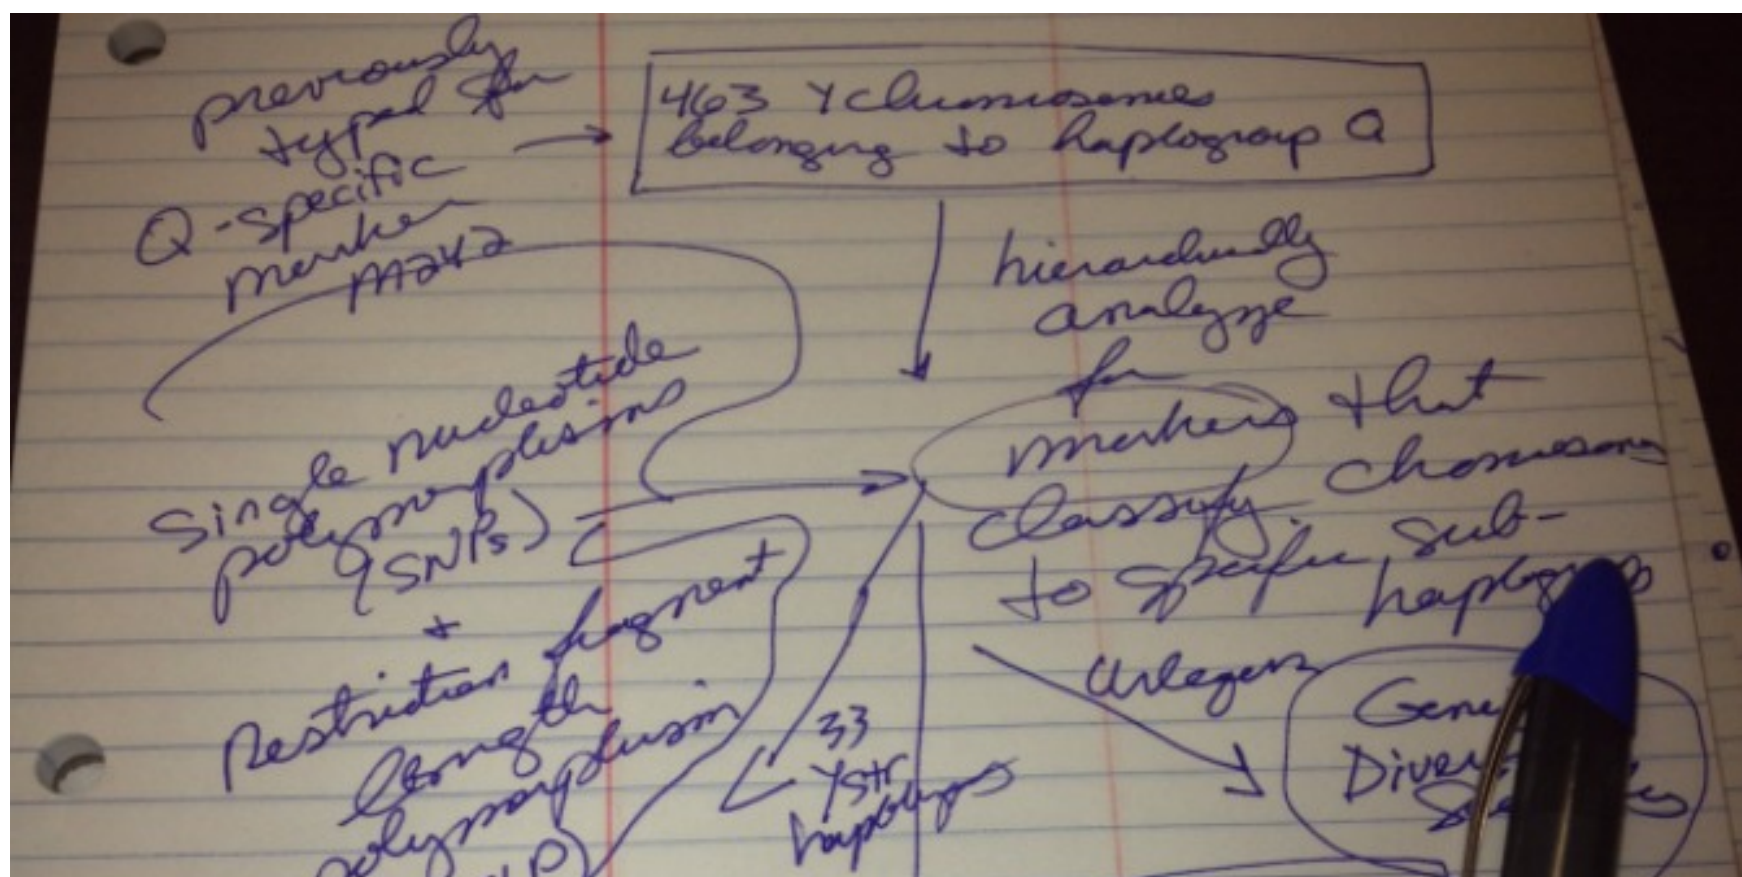 previously
typed for
Q-specific
marker
M242
463 Y chromosomes
belonging to haplogroup Q
hierarchically
analyze
for
markers that
classify chomosomes
to specific sub-
haplogroups
Single nucleotide
polymorphisms
(SNPs)
+
Restriction fragment
length
polymorphism
33
YSTR
haplotypes